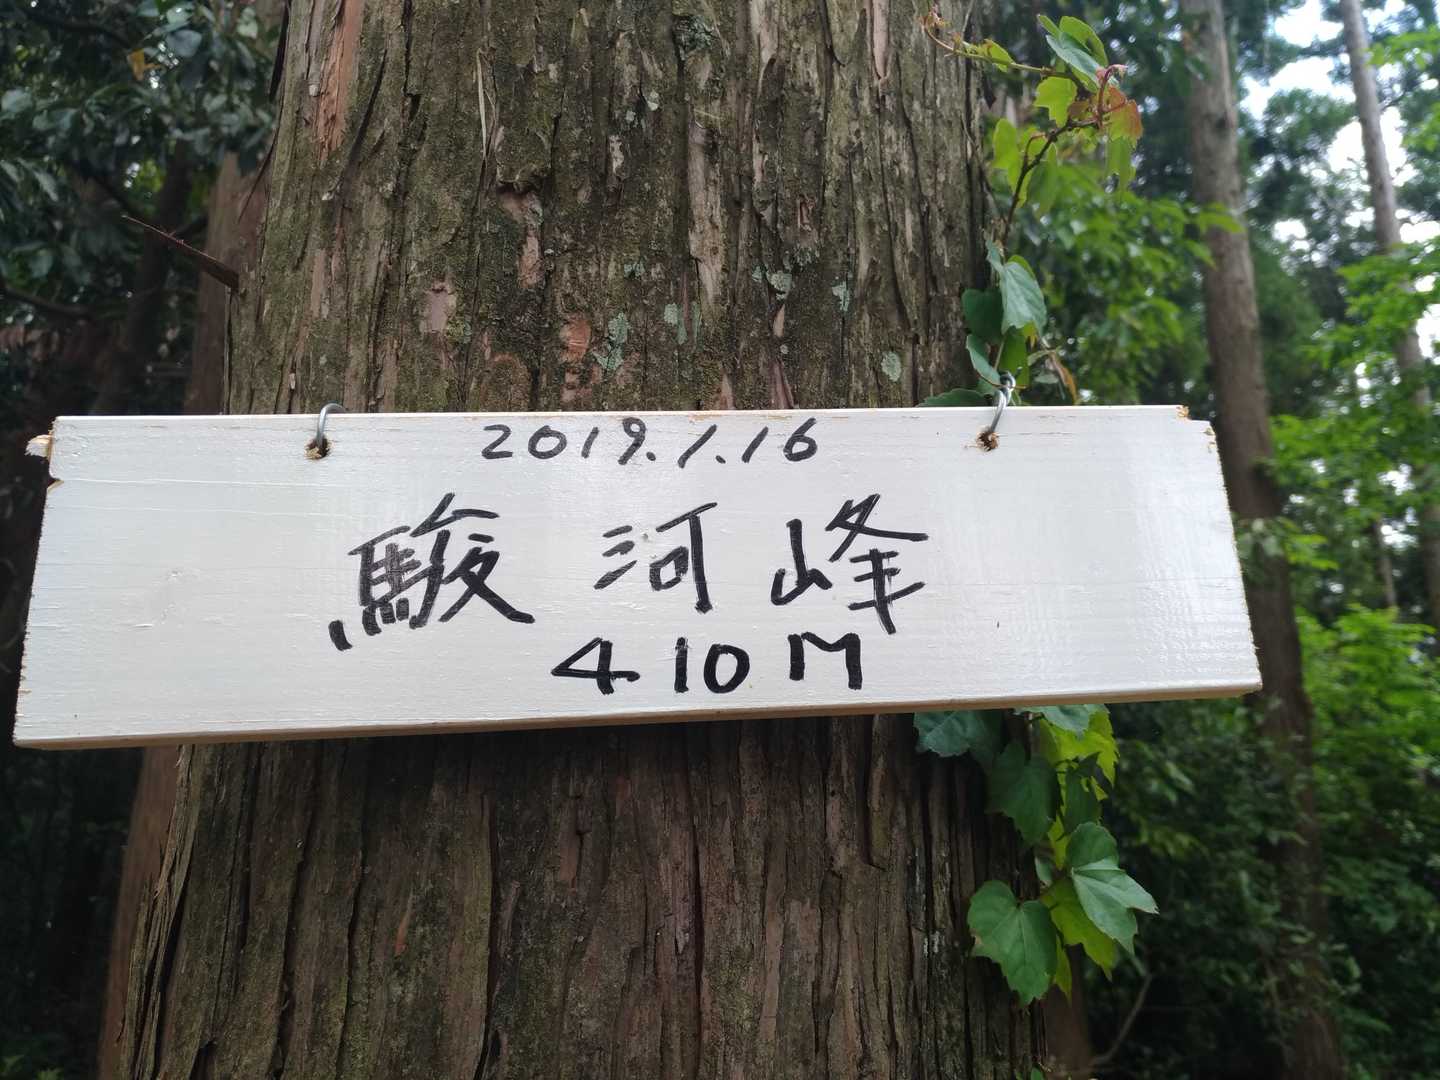 2019.1.16
駿河峰
410M